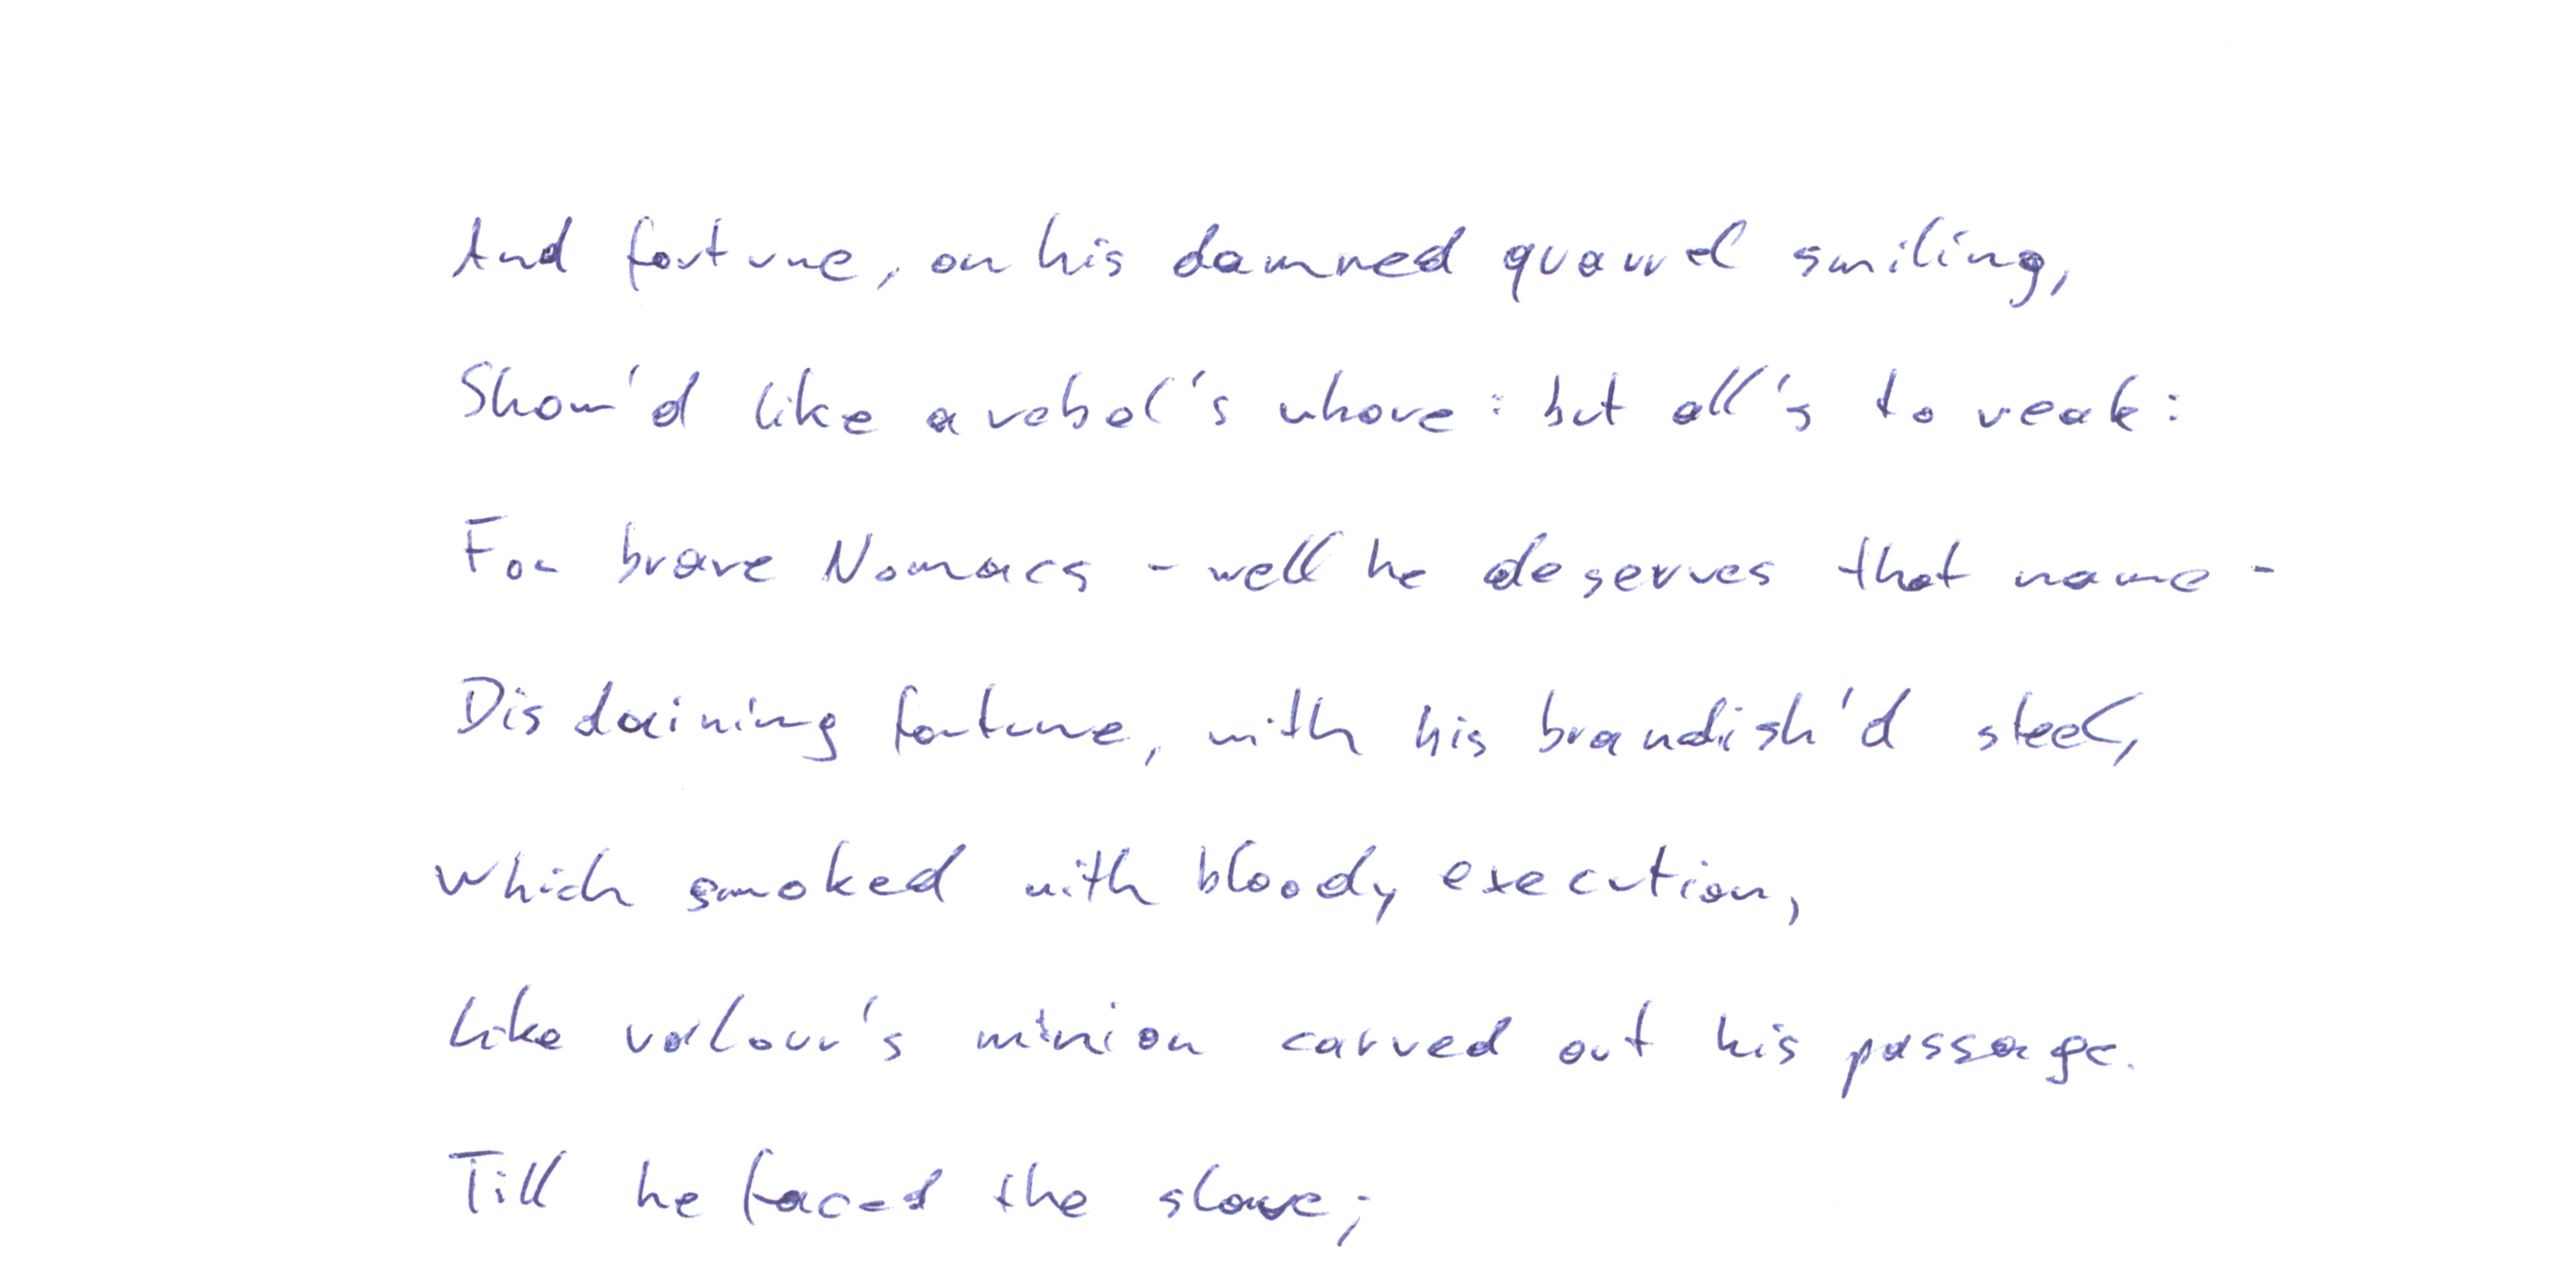 And fortune, on his damned quarrel smiling,
Show'd like a rebel's whore: but all's to weak:
For brave Nomacs - well he deserves that name -
Disdaining fortune, with his brandish'd steel,
Which smoked with bloody execution,
Like valour's minion carved out his passage.
Till he faced the slave;